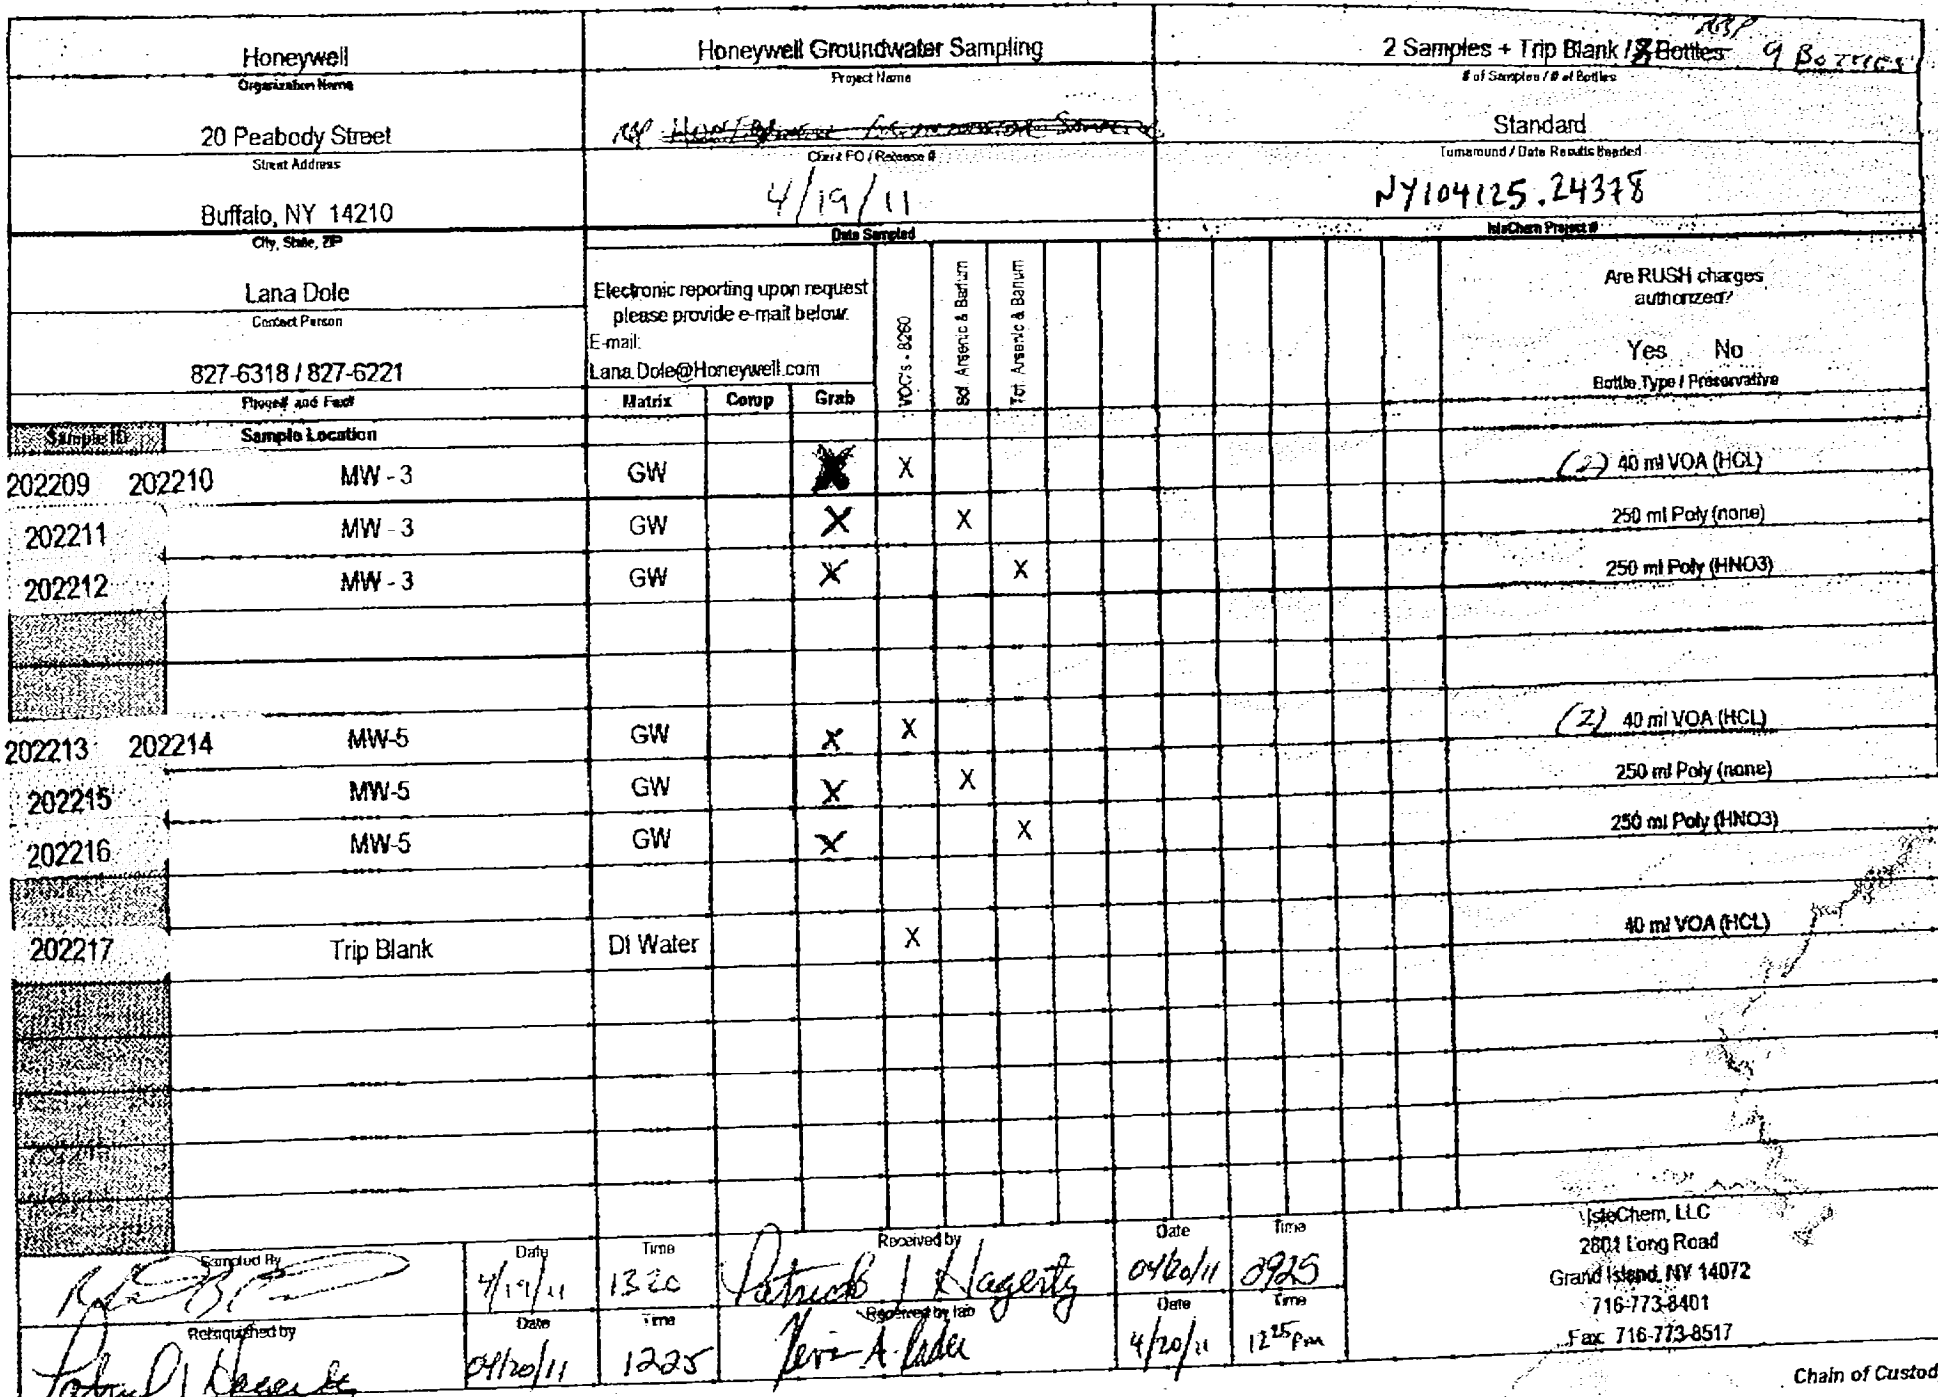 Honeywell
Organization Name
20 Peabody Street
Street Address
Buffalo, NY 14210
City, State, ZIP
Lana Dole
Contact Person
827-6318 / 827-6221
Phone# and Fax#
Honeywell Groundwater Sampling
Project Name
Client PO / Release #
4/19/11
Date Sampled
2 Samples + Trip Blank / Bottles 9 Bottles
# of Samples / # of Bottles
Standard
Turnaround / Date Results Needed
NY104125.24378
IsleChem Project #
Electronic reporting upon request
please provide e-mail below:
E-mail:
Lana.Dole@Honeywell.com
Matrix Comp Grab
VOC's - 8260
Sol. Arsenic & Barium
Tot. Arsenic & Barium
Are RUSH charges
authorized?
Yes No
Bottle Type / Preservative
Sample ID Sample Location
202209 202210 MW - 3 GW X X (2) 40 ml VOA (HCL)
202211 MW - 3 GW X X 250 ml Poly (none)
202212 MW - 3 GW X X 250 ml Poly (HNO3)
202213 202214 MW-5 GW X X (2) 40 ml VOA (HCL)
202215 MW-5 GW X X 250 ml Poly (none)
202216 MW-5 GW X X 250 ml Poly (HNO3)
202217 Trip Blank DI Water X 40 ml VOA (HCL)
Sampled By Date Time Received by Date Time
4/19/11 1320 Patrick J Hagerty 04/20/11 0925
Relinquished by Date Time Received by lab Date Time
04/20/11 1225 Kevin A. 4/20/11 1225pm
IsleChem, LLC
2801 Long Road
Grand Island, NY 14072
716-773-8401
Fax: 716-773-8517
Chain of Custod